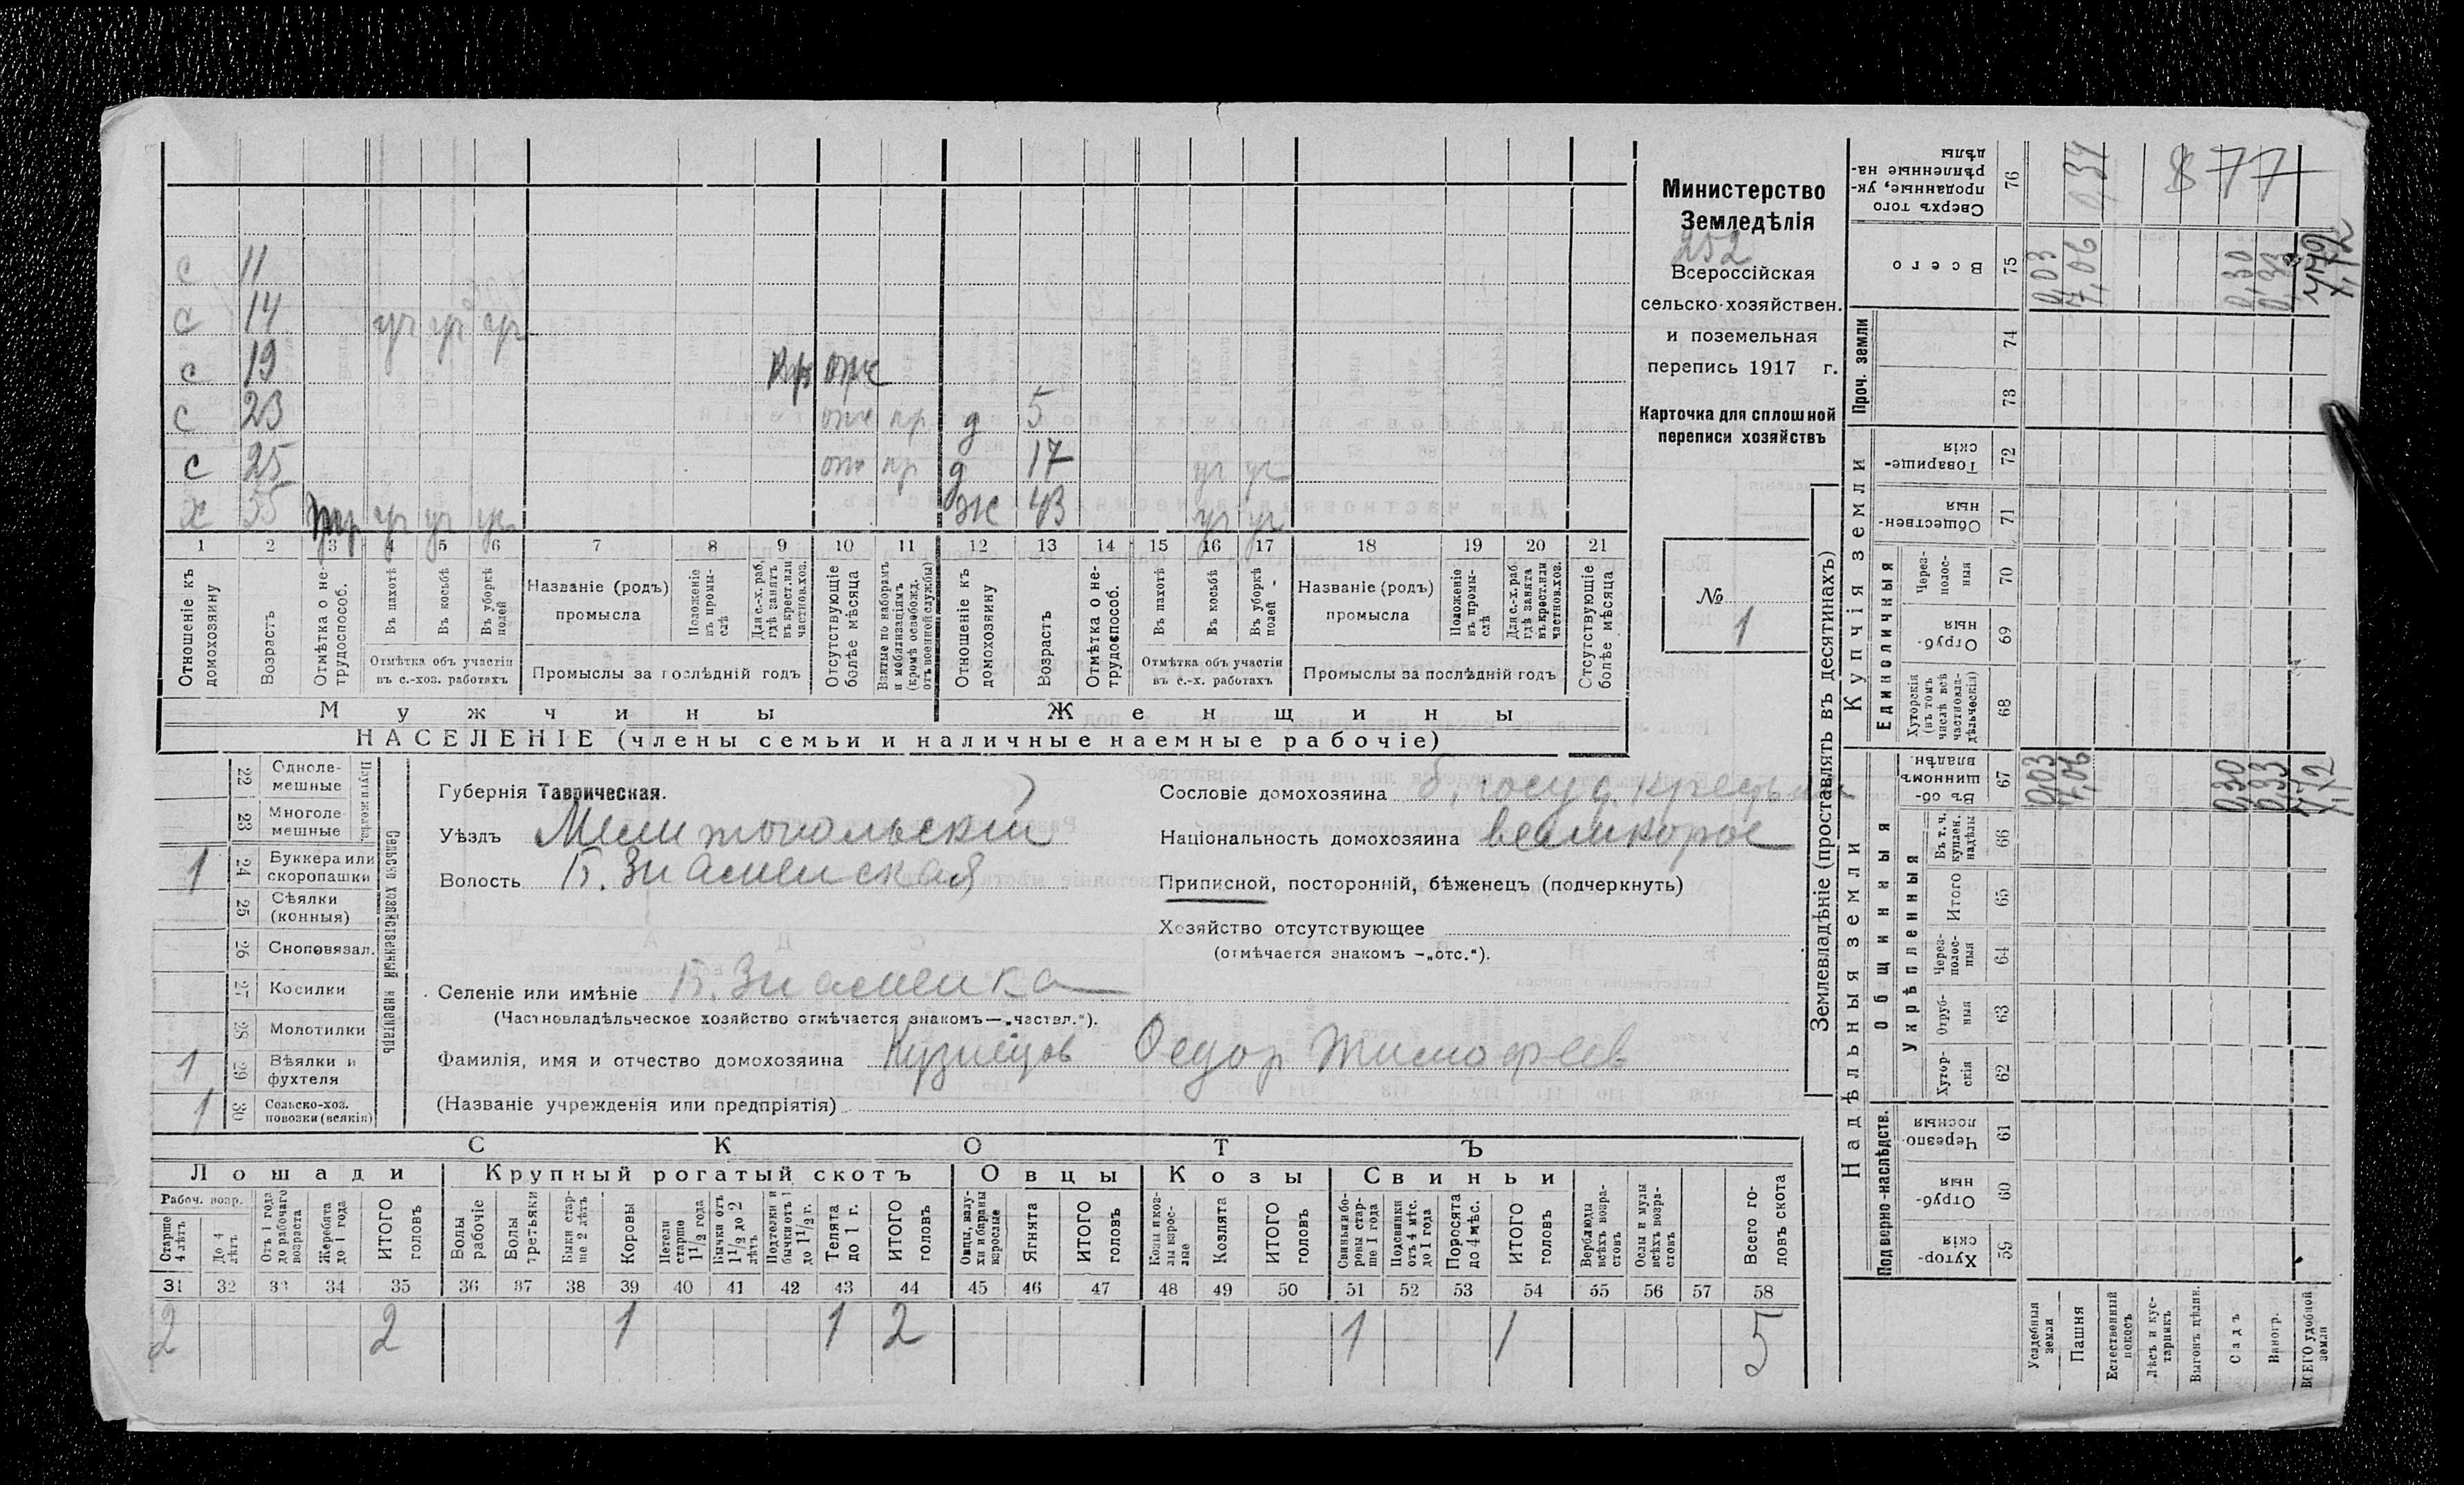 с 11
с 14 уч уч уч
с 19 кр отс
с 23 отс пр д 5
с 25 отс пр д 17 уч уч
х 55 уч уч уч ж 43 уч уч
1 2 3 4 5 6 7 8 9 10 11 12 13 14 15 16 17 18 19 20 21
Отношеніе къ домохозяину
Возрастъ
Отмѣтка о не-трудоспособ.
Въ пахотѣ
Въ косьбѣ
Въ уборкѣ полей
Отмѣтка объ участіи въ с.-хоз. работахъ
Названіе (родъ) промысла
Положеніе въ промы-слѣ
Для с.-х. раб. гдѣ занятъ въ крест. или частнов. хоз.
Промыслы за послѣдній годъ
Отсутствующіе болѣе мѣсяца
Взятые по наборамъ и мобилизаціямъ (кромѣ освобожд. отъ военной службы)
Отношеніе къ домохозяину
Возрастъ
Отмѣтка о не-трудоспособ.
Въ пахотѣ
Въ косьбѣ
Въ уборкѣ полей
Отмѣтка объ участіи въ с.-х. работахъ
Названіе (родъ) промысла
Положеніе въ промы-слѣ
Для с.-х. раб. гдѣ занята въ крест. или частнов. хоз.
Промыслы за послѣдній годъ
Отсутствующіе болѣе мѣсяца
Мужчины
Женщины
НАСЕЛЕНІЕ (члены семьи и наличные наемные рабочіе)
Министерство
Земледѣлія
252
Всероссійская
сельско-хозяйствен.
и поземельная
перепись 1917 г.
Карточка для сплошной
переписи хозяйствъ
№
1
22 Одноле-мешные
23 Многоле-мешные
1 24 Буккера или скоропашки
25 Сѣялки (конныя)
26 Сноповязал.
27 Косилки
28 Молотилки
1 29 Вѣялки и фухтеля
1 30 Сельско-хоз. повозки (всякія)
Сельско хозяйственный инвентарь
Губернія Таврическая.
Уѣздъ Мелитопольскій
Волость Б. Знаменская
Сословіе домохозяина б. госуд. крестьян
Національность домохозяина великорос
Приписной, посторонній, бѣженецъ (подчеркнуть)
Хозяйство отсутствующее
(отмѣчается знакомъ —„отс.“).
Селеніе или имѣніе Б. Знаменка
(Частновладѣльческое хозяйство отмѣчается знакомъ—„частвл.“).
Фамилія, имя и отчество домохозяина Кузнецов Федор Тимофеев
(Названіе учрежденія или предпріятія)
СКОТЪ
Лошади
Крупный рогатый скотъ
Овцы
Козы
Свиньи
Рабоч. возр.
Старше 4 лѣтъ
До 4 лѣтъ
Отъ 1 года до рабочаго возраста
Жеребята до 1 года
ИТОГО головъ
Волы рабочіе
Волы третьяки
Быки стар-ше 2 лѣтъ
Коровы
Нетели старше 1 1/2 года
Бычки отъ 1 1/2 до 2 лѣтъ
Подтелки и бычки отъ 1 до 1 1/2 г.
Телята до 1 г.
ИТОГО головъ
Овцы, валу-хи и бараны взрослые
Ягнята
ИТОГО головъ
Козы и коз-лы взрос-лые
Козлята
ИТОГО головъ
Свиньи и бо-ровы стар-ше 1 года
Подсвинки отъ 4 мѣс. до 1 года
Поросята до 4 мѣс.
ИТОГО головъ
Верблюды всѣхъ возра-стовъ
Ослы и мулы всѣхъ возра-стовъ
Всего го-ловъ скота
31 32 33 34 35 36 37 38 39 40 41 42 43 44 45 46 47 48 49 50 51 52 53 54 55 56 57 58
2 2 1 1 2 1 1 5
Землевладѣніе (проставлять въ десятинахъ)
Надѣльныя земли
Купчія земли
Проч. земли
Подворно-наслѣдств.
Общинныя
Укрѣпленныя
Единоличныя
Сверхъ того проданные, ук-рѣпленные на-дѣлы 76 0,34
877
Всего 75 0,03 7,06 0,30 0,33 7,72
74
73
Товарище-скія 72
Обществен-ныя 71
Через-полос-ныя 70
Отруб-ныя 69
Хуторскія (въ томъ числѣ всѣ частновла-дѣльческія) 68
Въ об-щинномъ владѣн. 67 0,03 7,06 0,30 0,33 7,72
Въ т. ч. куплен. надѣлы 66
Итого 65
Через-полос-ныя 64
Отруб-ныя 63
Хутор-скія 62
Черезпо-лосныя 61
Отруб-ныя 60
Хутор-скія 59
Усадебныя земли
Пашня
Естественный покосъ
Лѣсъ и кус-тарникъ
Выгонъ цѣлин.
Садъ
Виногр.
ВСЕГО удобной земли